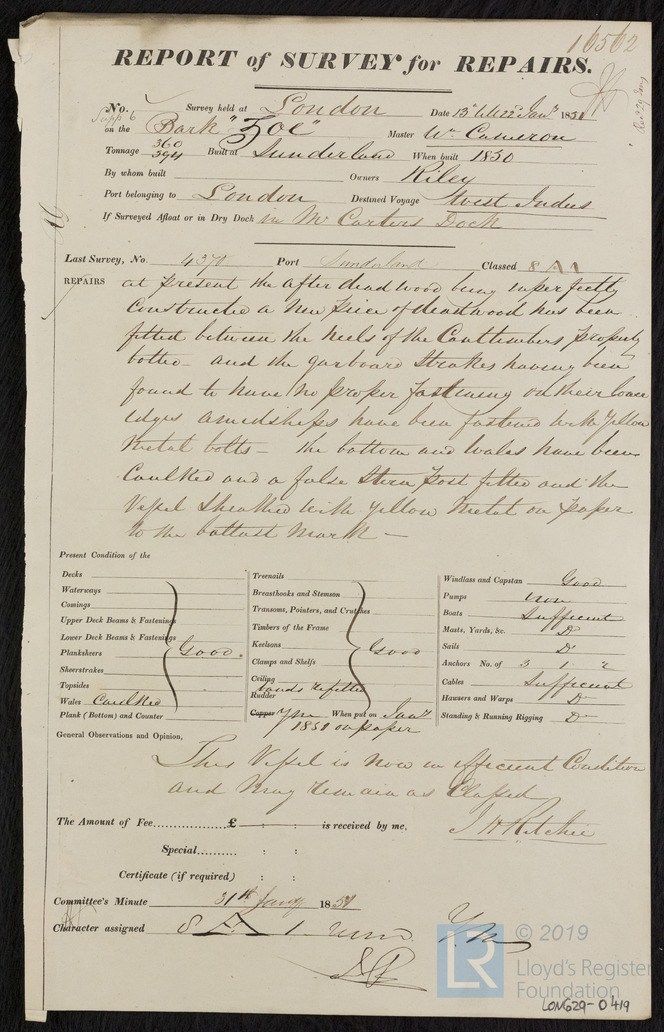 16562
REPORT of SURVEY for REPAIRS.
No. Survey held at London Date 13th till 22nd Jany 1851
on the Bark "Zoe" Master Wm Cameron
Tonnage 360 394 Built at Sunderland When built 1850
By whom built Owners Riley
Port belonging to London Destined Voyage West Indies
If Surveyed Afloat or in Dry Dock in Mr Carters Dock
Last Survey, No. 4370 Port Sunderland Classed 8 A 1
REPAIRS at present the after dead wood being imperfectly
Constructed a New Piece of deadwood has been
fitted between the heels of the Canttimbers properly
bolted - and the garboard Strakes having been
found to have no proper fastening on their lower
edges amidships have been fastened with Yellow
Metal bolts - the bottom and Wales have been
Caulked and a false Stern post fitted and the
Vessel Sheathed with Yellow Metal on paper
to the ballast Mark -
Present Condition of the
Decks
Waterways
Comings
Upper Deck Beams & Fastenings
Lower Deck Beams & Fastenings
Planksheers Good.
Sheerstrakes
Topsides
Wales Caulked
Plank (Bottom) and Counter
Treenails
Breasthooks and Stemson
Transoms, Pointers, and Crutches
Timbers of the Frame
Keelsons Good
Clamps and Shelfs
Ceiling
Rudder bands refitted
Copper YM When put on Jany
1851 on paper
Windlass and Capstan Good
Pumps Iron
Boats Sufficient
Masts, Yards, &c. Do
Sails Do
Anchors No. of 3 1 2
Cables Sufficient
Hawsers and Warps Do
Standing & Running Rigging Do
General Observations and Opinion,
This Vessel is now in efficient Condition
and May remain as Classed
The Amount of Fee.............. £ : : is received by me, J H Ritchie
Special.......... : :
Certificate (if required) : :
Committee's Minute 31st Jany 1851
Character assigned 8 A 1. Y.M
© 2019
LR
Lloyd's Register
Foundation
LON629-0419